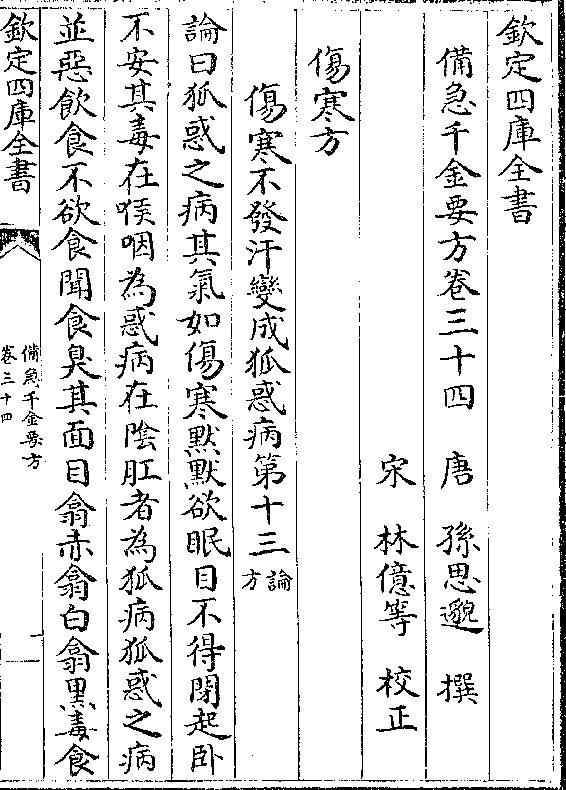 欽定四庫全書
備急千金要方卷三十四　唐　孫思邈　撰
宋　林億等　校正
傷寒方
傷寒不發汗變成狐惑病第十三論方
論曰狐惑之病其氣如傷寒默默欲眠目不得閉起卧
不安其毒在喉咽為惑病在陰肛者為狐病狐惑之病
並惡飲食不欲食聞食臭其面目翕赤翕白翕黒毒食
欽定四庫全書
備急千金要方
卷三十四
一